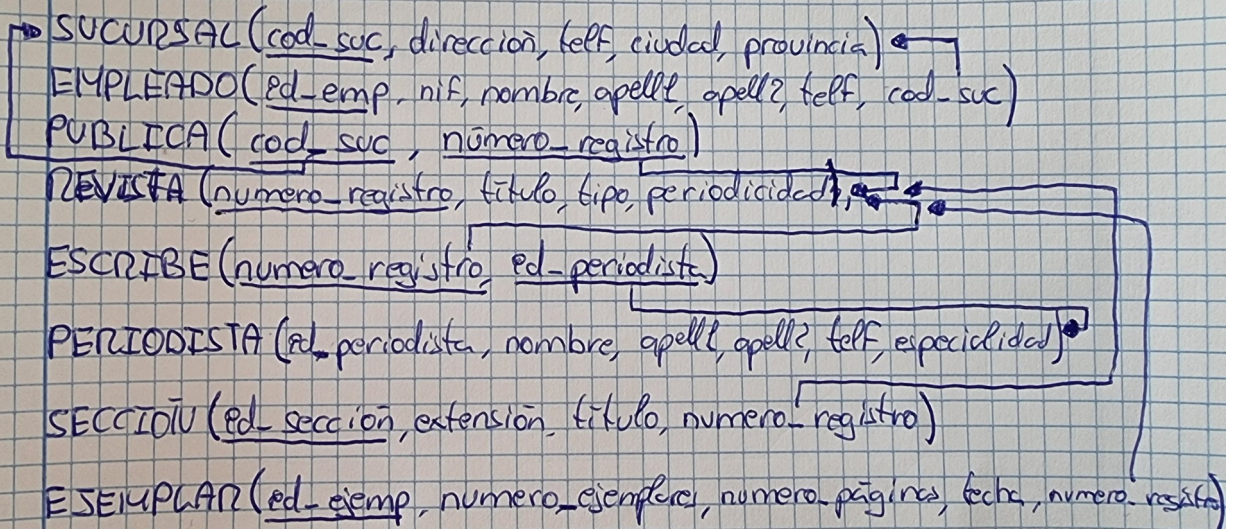 SUCURSAL (cod_suc, dirección, telf, ciudad, provincia)
EMPLEADO (id_emp, nif, nombre, apell1, apell2, telf, cod_suc)
PUBLICA (cod_suc, número_registro)
REVISTA (numero_registro, título, tipo, periodicidad),
ESCRIBE (numero_registro, id_periodista)
PERIODISTA (id_periodista, nombre, apell1, apell2, telf, especialidad)
SECCIÓN (id_sección, extensión, título, numero_registro)
EJEMPLAR (id_ejemp, numero_ejemplares, numero_páginas, fecha, numero_registro)